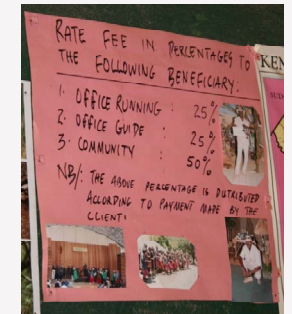 RATE FEE IN PERCENTAGES TO
THE FOLLOWING BENEFICIARY.
1. OFFICE RUNNING : 25%
2. OFFICE GUIDE : 25%
3. COMMUNITY : 50%
NB/: THE ABOVE PERCENTAGE IS DISTRIBUTED
ACCORDING TO PAYMENT MADE BY THE
CLIENT:
KEN